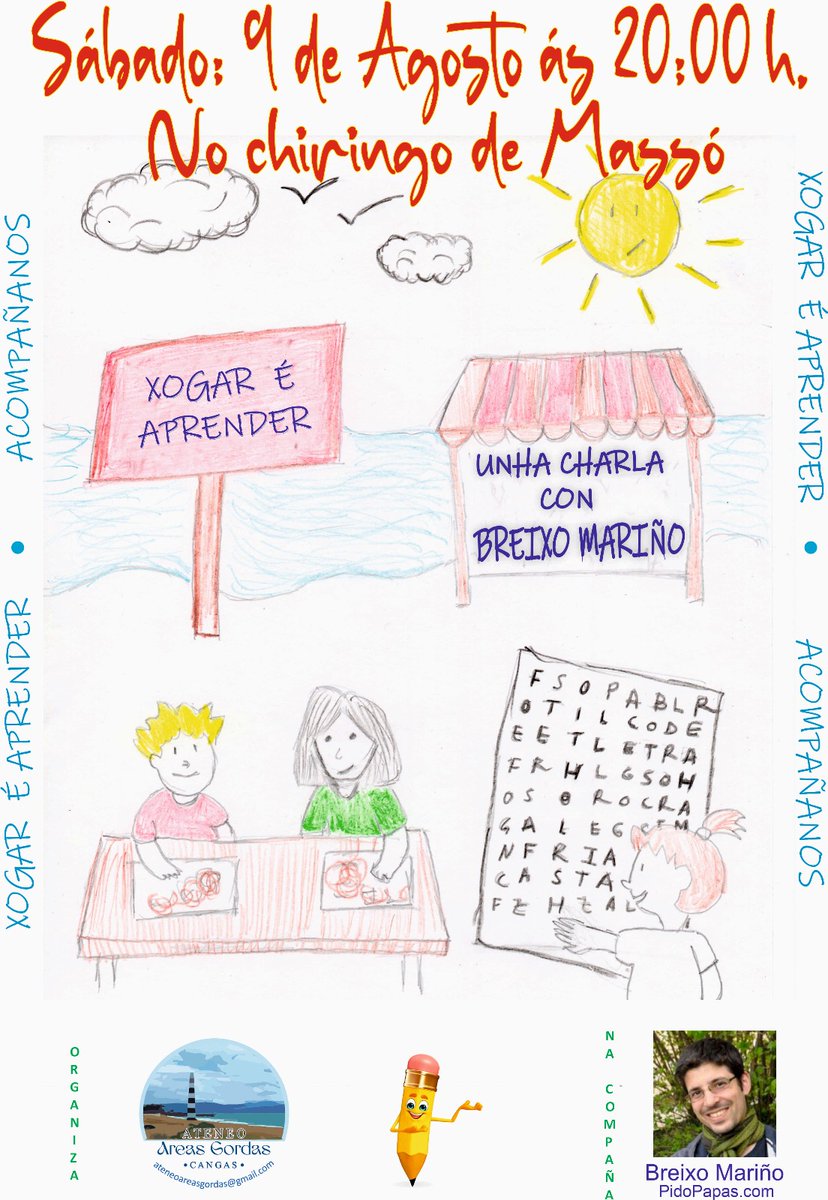 Sábado: 9 de Agosto ás 20:00 h.
No chiringo de Massó
ACOMPAÑANOS
XOGAR É APRENDER
XOGAR É
APRENDER
UNHA CHARLA
CON
BREIXO MARIÑO
XOGAR É APRENDER
ACOMPAÑANOS
F S O P A B L R
O T I L C O D E
E E T L E T R A
F R H L G S O H
O S O R O C R A
G A L E G
N F R I A
C A S T A
F Z H Z A L
ORGANIZA
ATENEO
Areas Gordas
• CANGAS •
ateneoareasgordas@gmail.com
NA COMPAÑA
Breixo Mariño
PidoPapas.com